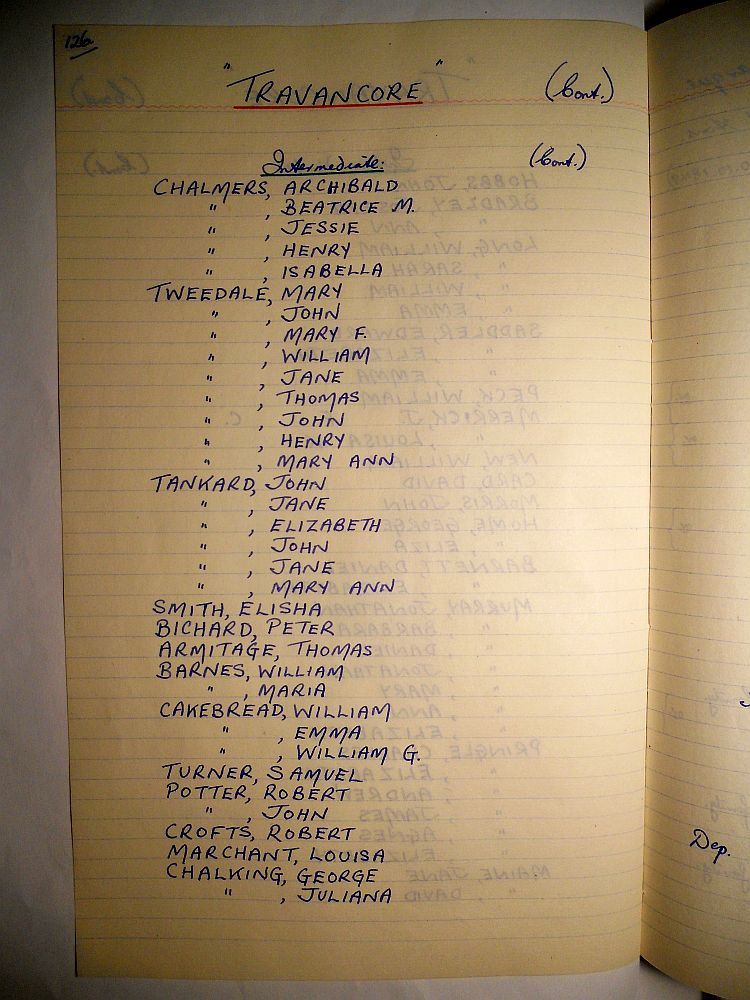 126
"TRAVANCORE" (Cont.)
Intermediate: (Cont.)
CHALMERS, ARCHIBALD
" , BEATRICE M.
" , JESSIE
" , HENRY
" , ISABELLA
TWEEDALE, MARY
" , JOHN
" , MARY F.
" , WILLIAM
" , JANE
" , THOMAS
" , JOHN
" , HENRY
" , MARY ANN
TANKARD, JOHN
" , JANE
" , ELIZABETH
" , JOHN
" , JANE
" , MARY ANN
SMITH, ELISHA
BICHARD, PETER
ARMITAGE, THOMAS
BARNES, WILLIAM
" , MARIA
CAKEBREAD, WILLIAM
" , EMMA
" , WILLIAM G.
TURNER, SAMUEL
POTTER, ROBERT
" , JOHN
CROFTS, ROBERT
MARCHANT, LOUISA
CHALKING, GEORGE
" , JULIANA
Dep.